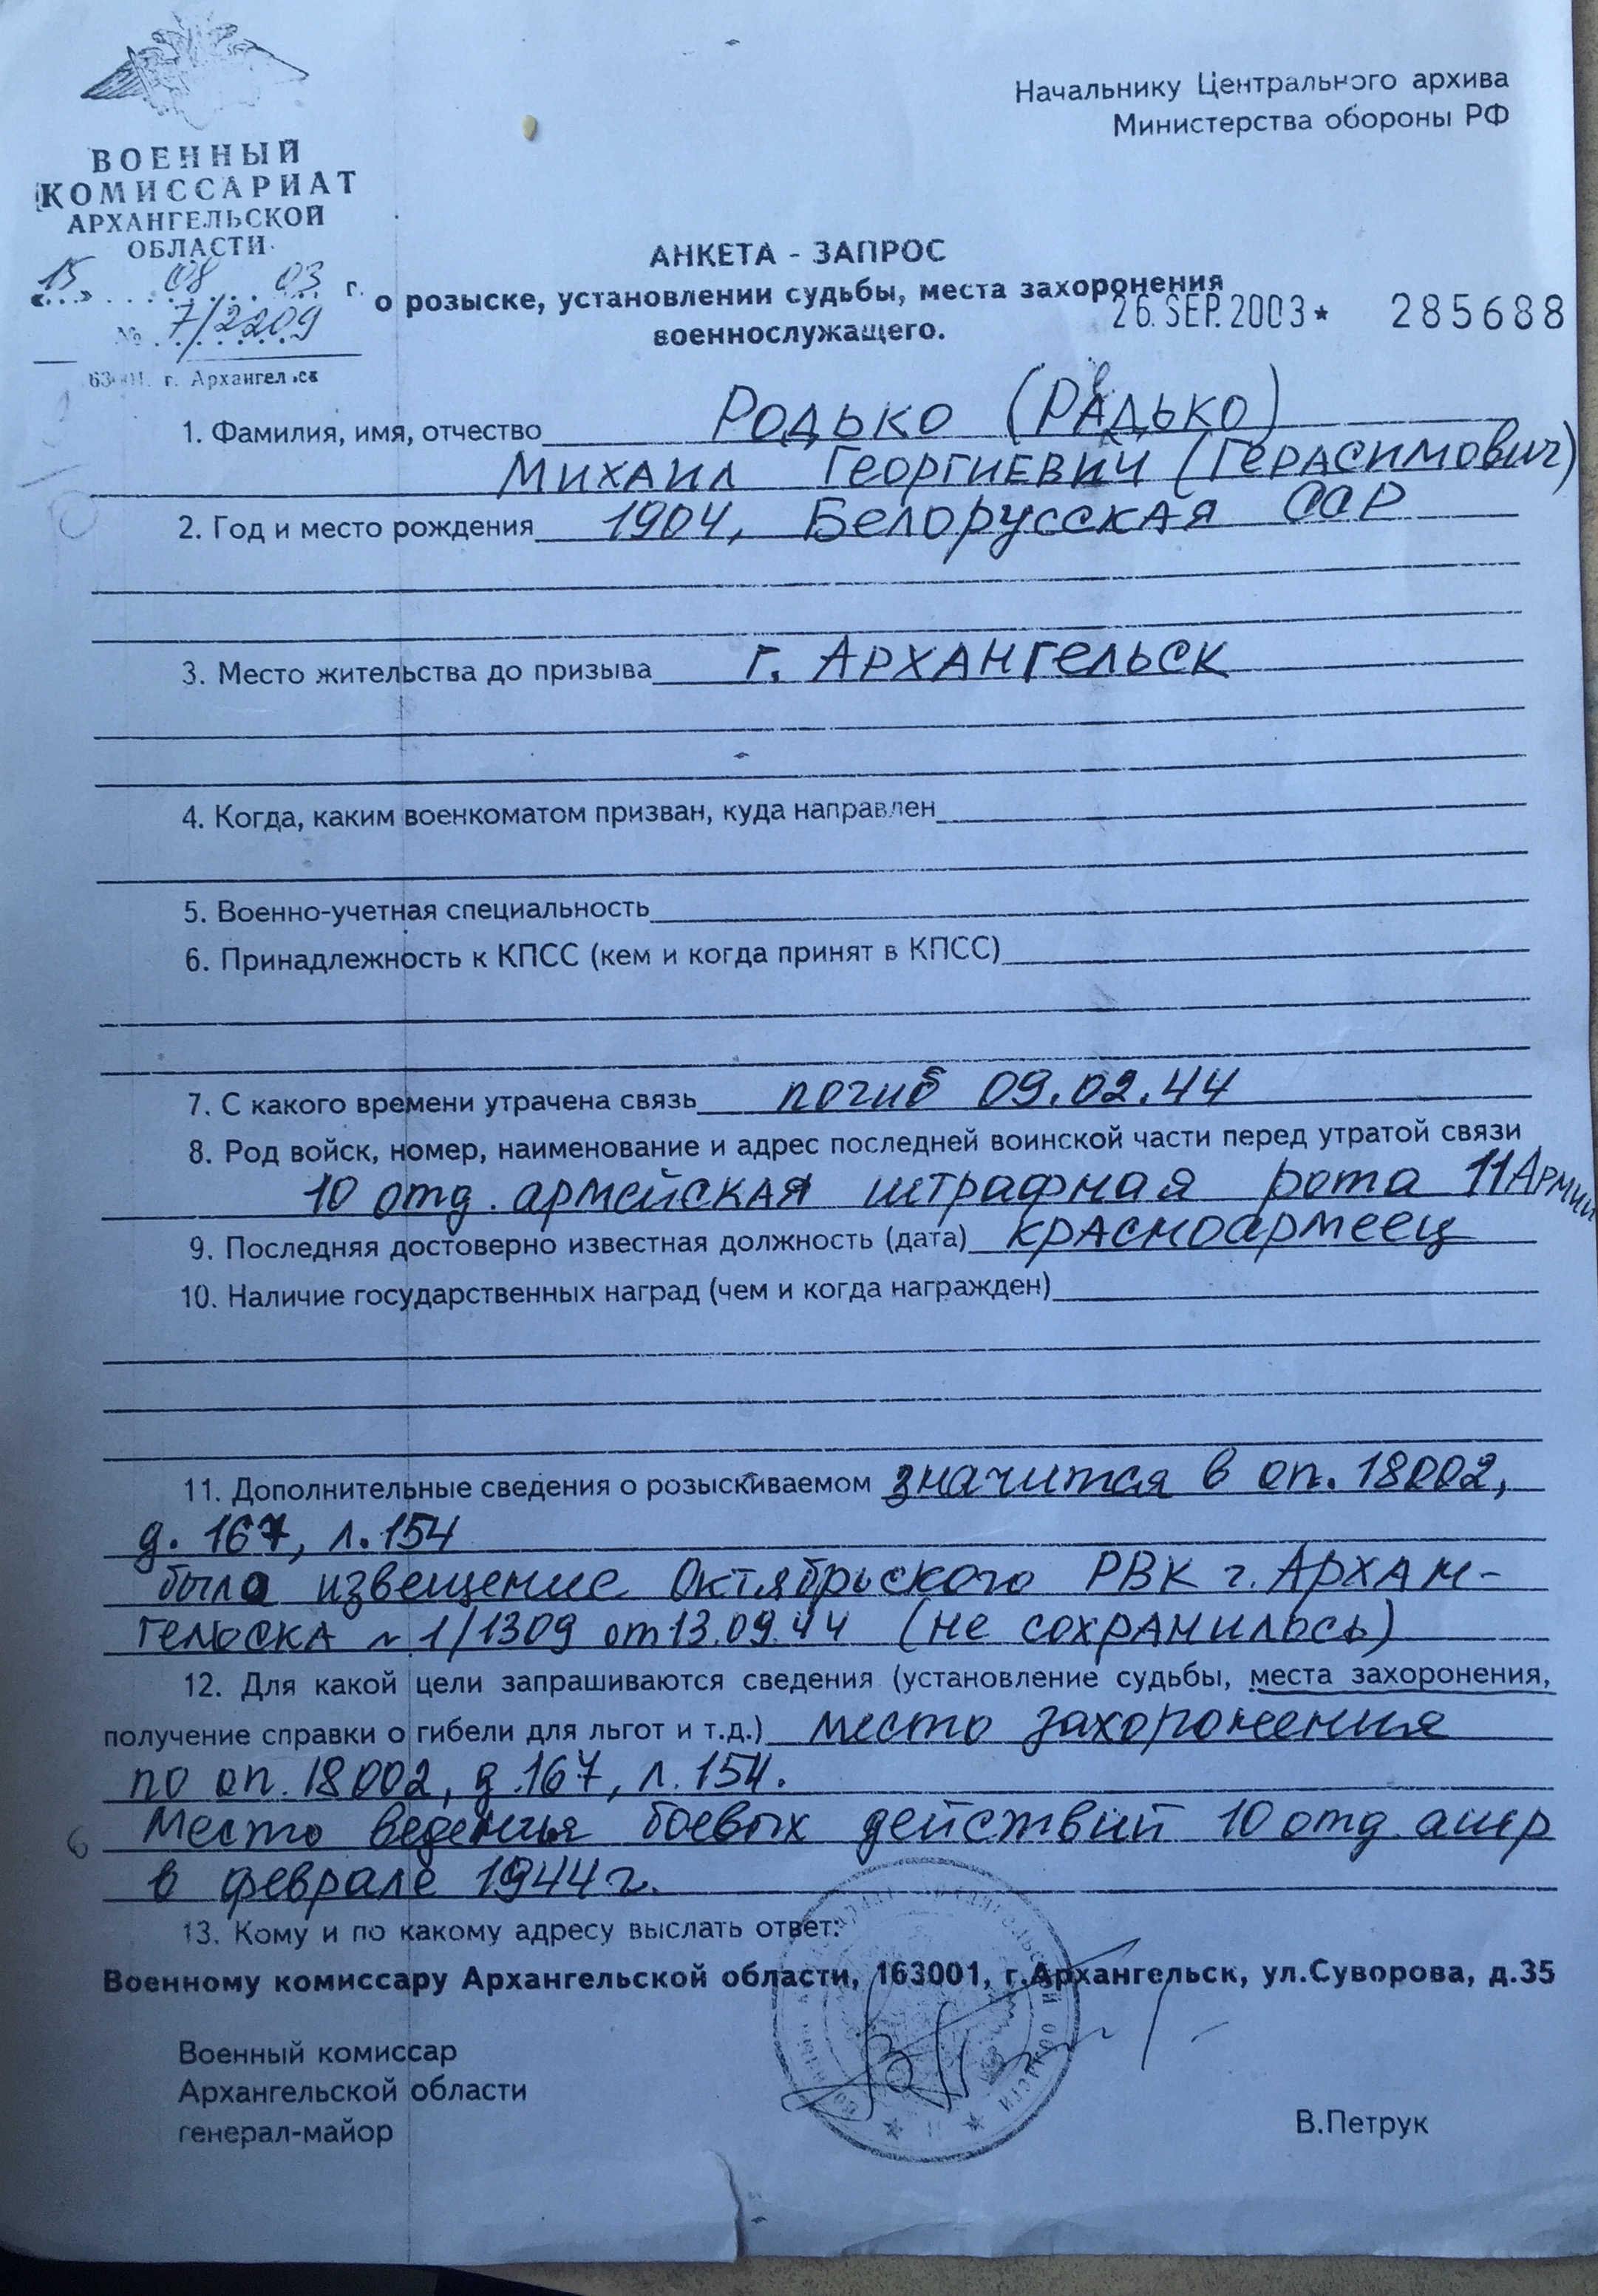 Начальнику Центрального архива
Министерства обороны РФ
ВОЕННЫЙ
КОМИССАРИАТ
АРХАНГЕЛЬСКОЙ
ОБЛАСТИ
«15» 08 03 г.
№ 7/2209
г. Архангельск
АНКЕТА - ЗАПРОС
о розыске, установлении судьбы, места захоронения
военнослужащего.
26. SEP. 2003 * 285688
1. Фамилия, имя, отчество Родько (Радько)
Михаил Георгиевич (Герасимович)
2. Год и место рождения 1904, Белорусская ССР
3. Место жительства до призыва г. Архангельск
4. Когда, каким военкоматом призван, куда направлен
5. Военно-учетная специальность
6. Принадлежность к КПСС (кем и когда принят в КПСС)
7. С какого времени утрачена связь погиб 09.02.44
8. Род войск, номер, наименование и адрес последней воинской части перед утратой связи
10 отд. армейская штрафная рота 11 Армии
9. Последняя достоверно известная должность (дата) красноармеец
10. Наличие государственных наград (чем и когда награжден)
11. Дополнительные сведения о розыскиваемом значится в оп. 18002,
д. 167, л. 154
было извещение Октябрьского РВК г. Архан-
гельска № 1/1309 от 13.09.44 (не сохранилось)
12. Для какой цели запрашиваются сведения (установление судьбы, места захоронения,
получение справки о гибели для льгот и т.д.) место захоронения
по оп. 18002, д. 167, л. 154.
Место ведения боевых действий 10 отд. ашр
в феврале 1944 г.
13. Кому и по какому адресу выслать ответ:
Военному комиссару Архангельской области, 163001, г.Архангельск, ул.Суворова, д.35
Военный комиссар
Архангельской области
генерал-майор
В.Петрук